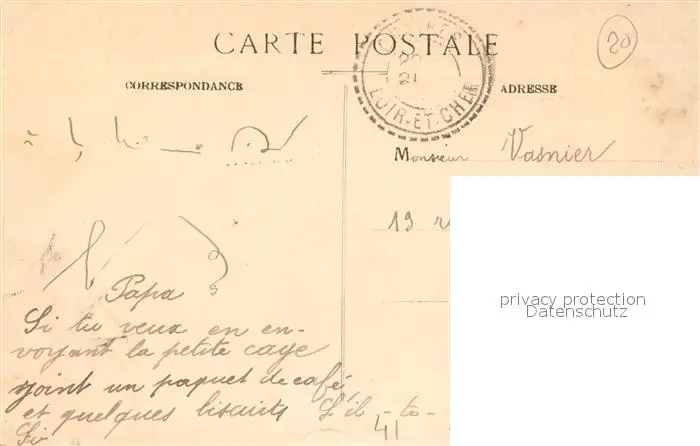 20
CARTE POSTALE
22
21
LOIR-ET-CHER
CORRESPONDANCE
ADRESSE
Monsieur Vasnier
19
privacy protection
Datenschutz
Papa
Si tu veux en en-
voyant la petite cage
joint un paquet de café
et quelques biscuits S'il - te -
41